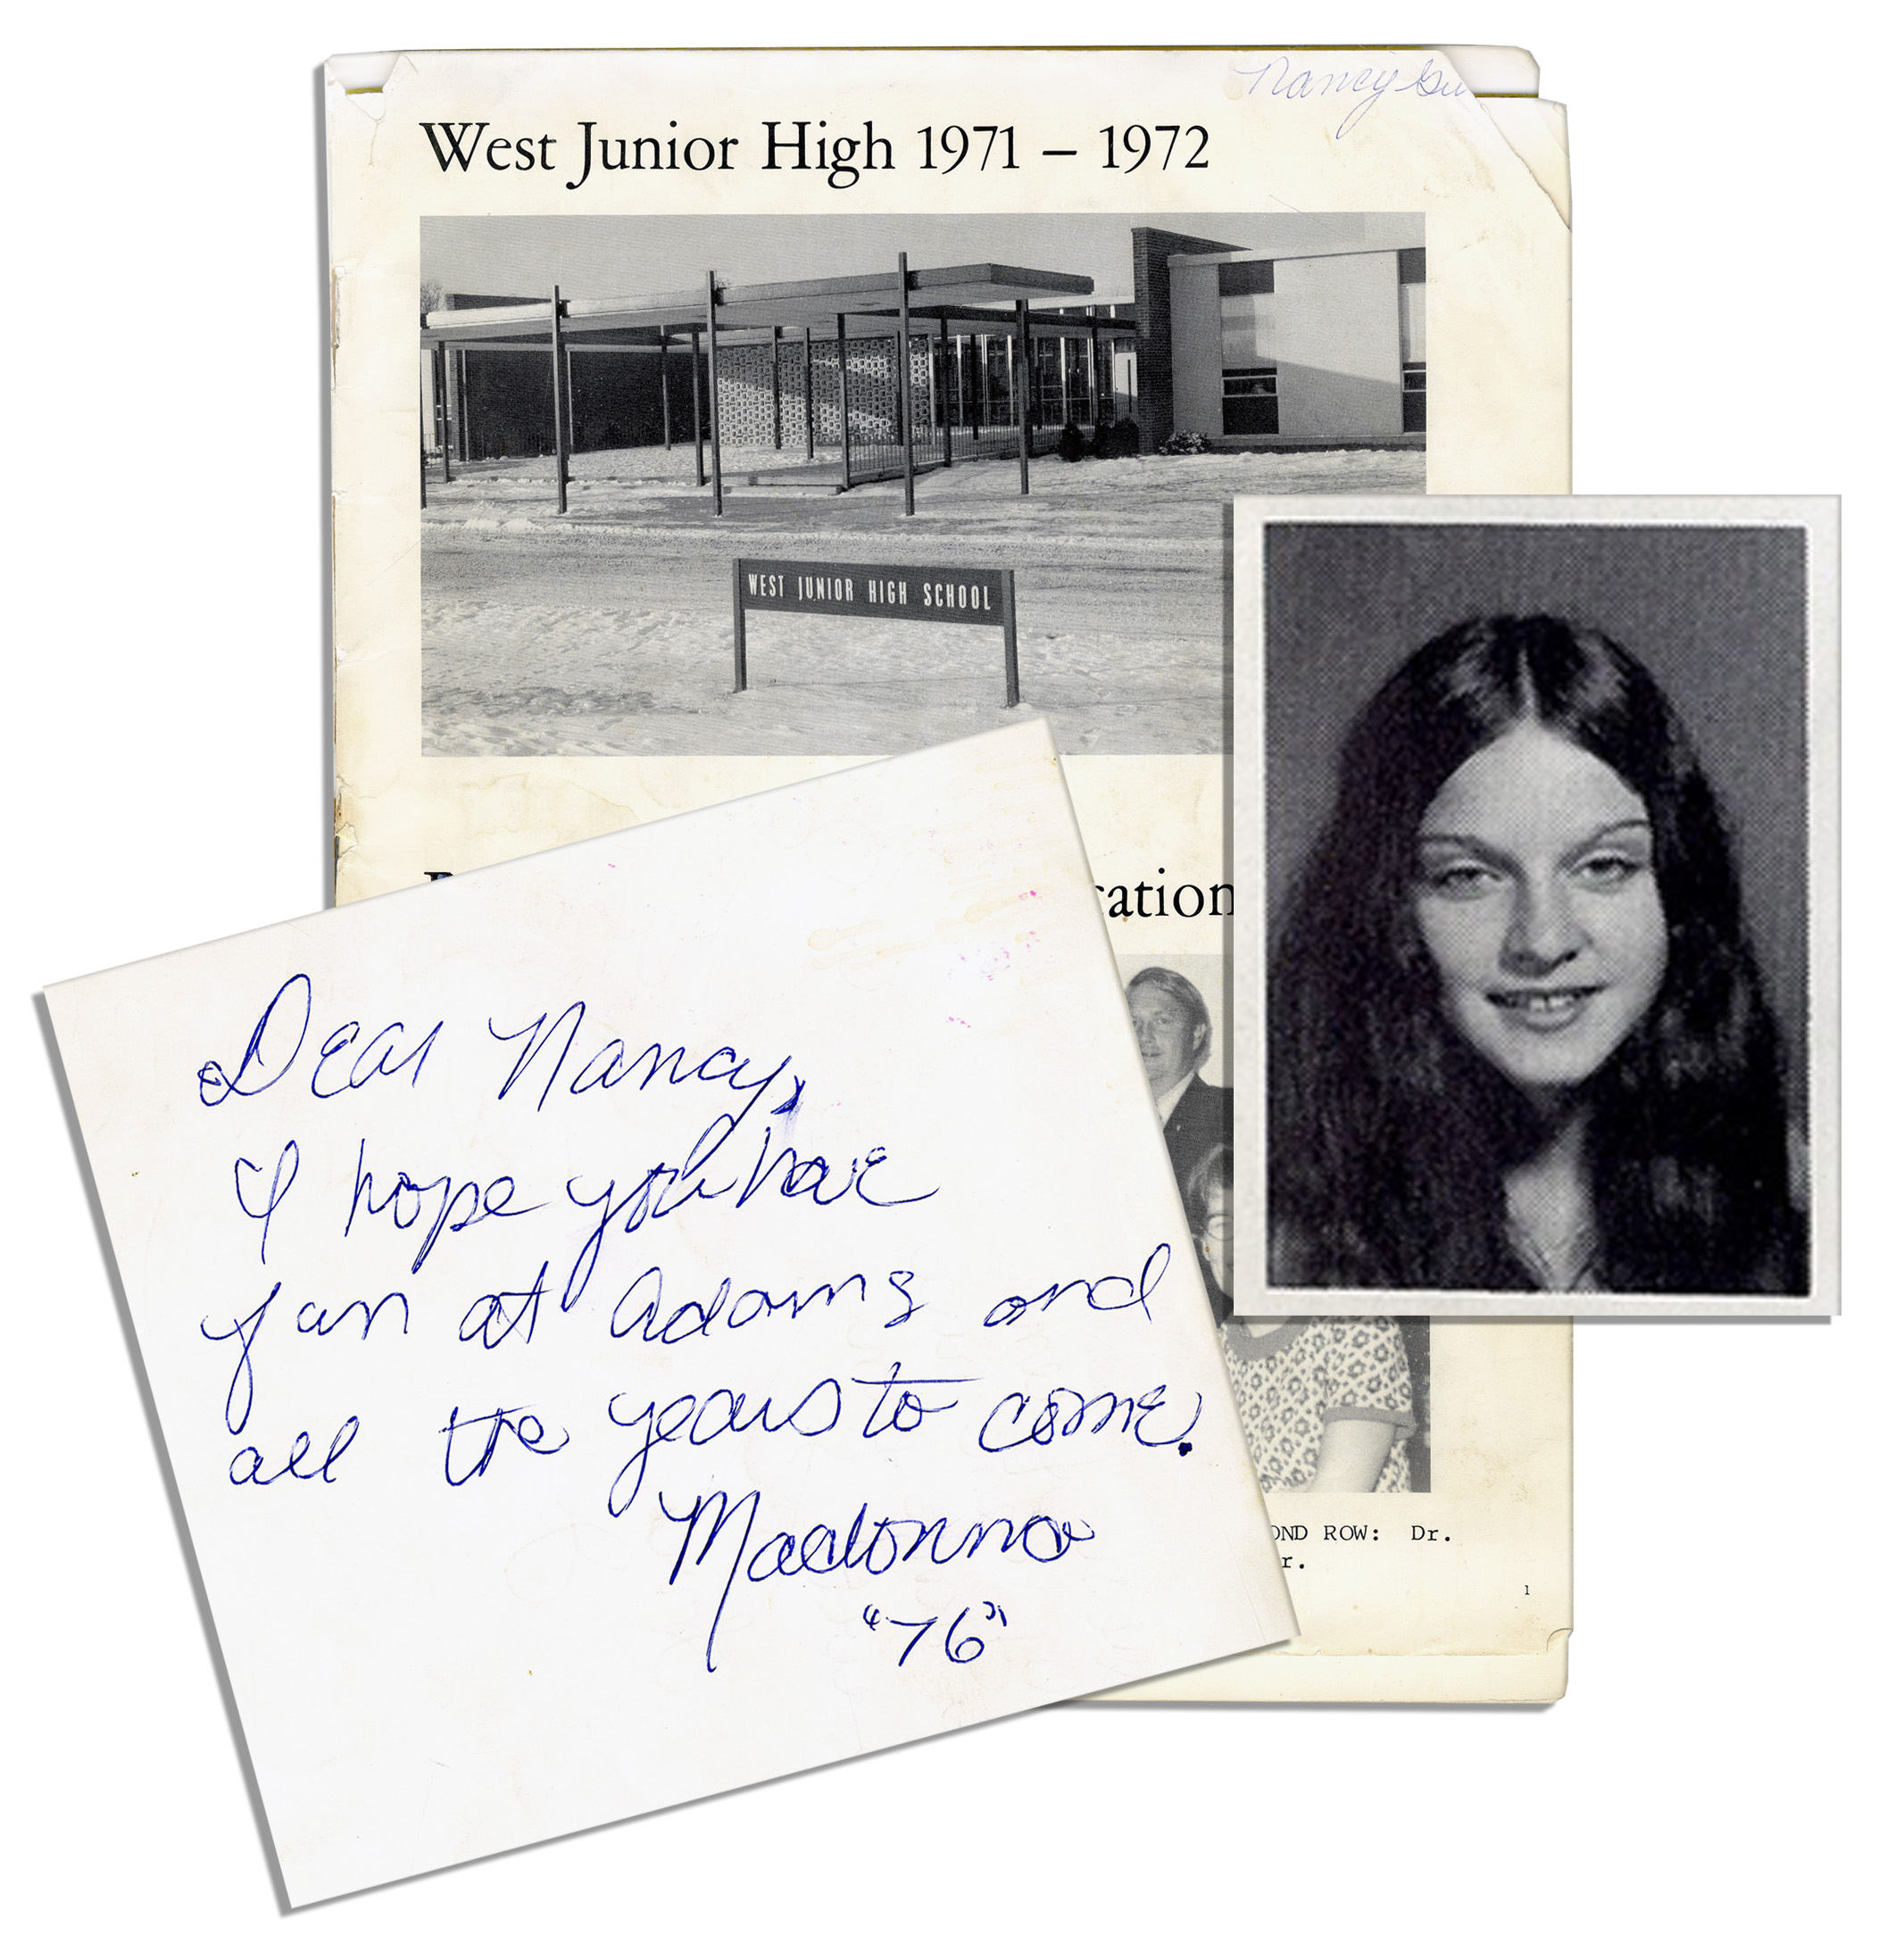 Nancy
West Junior High 1971 – 1972
WEST JUNIOR HIGH SCHOOL
ration
Dear Nancy,
I hope you have
fun at Adams and
all the years to come.
Madonna
"76"
OND ROW: Dr.
r.
1